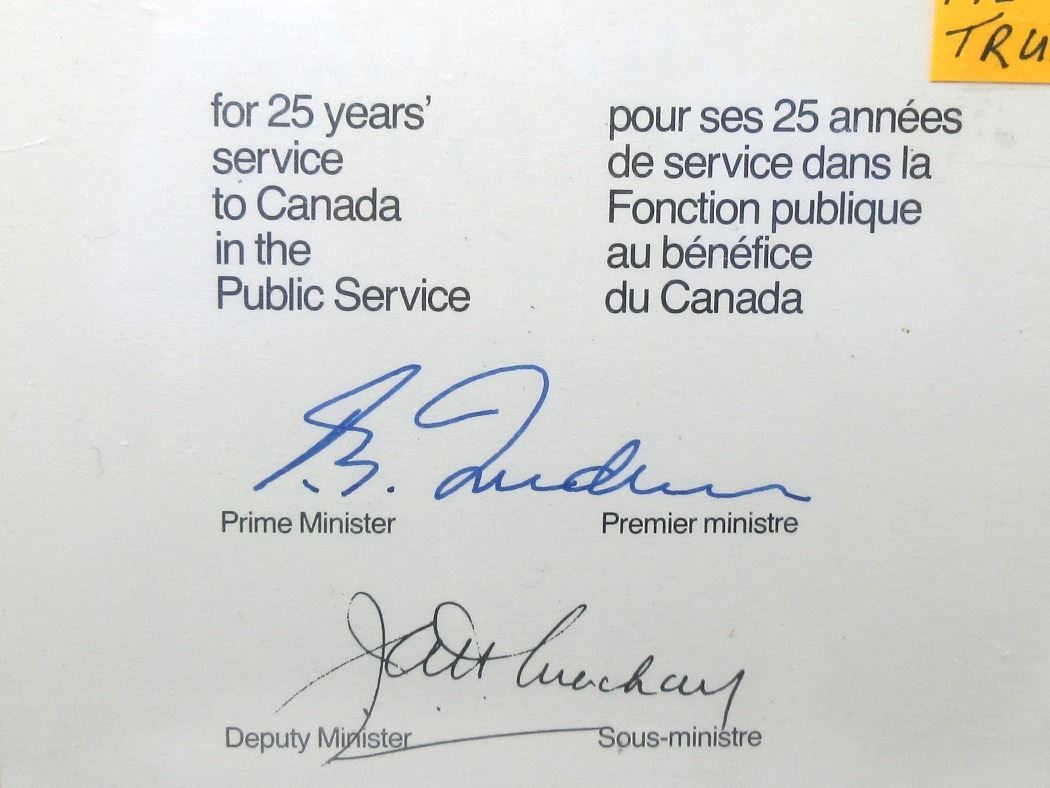 TRU
for 25 years’
service
to Canada
in the
Public Service
pour ses 25 années
de service dans la
Fonction publique
au bénéfice
du Canada
Prime Minister
Premier ministre
Deputy Minister
Sous-ministre